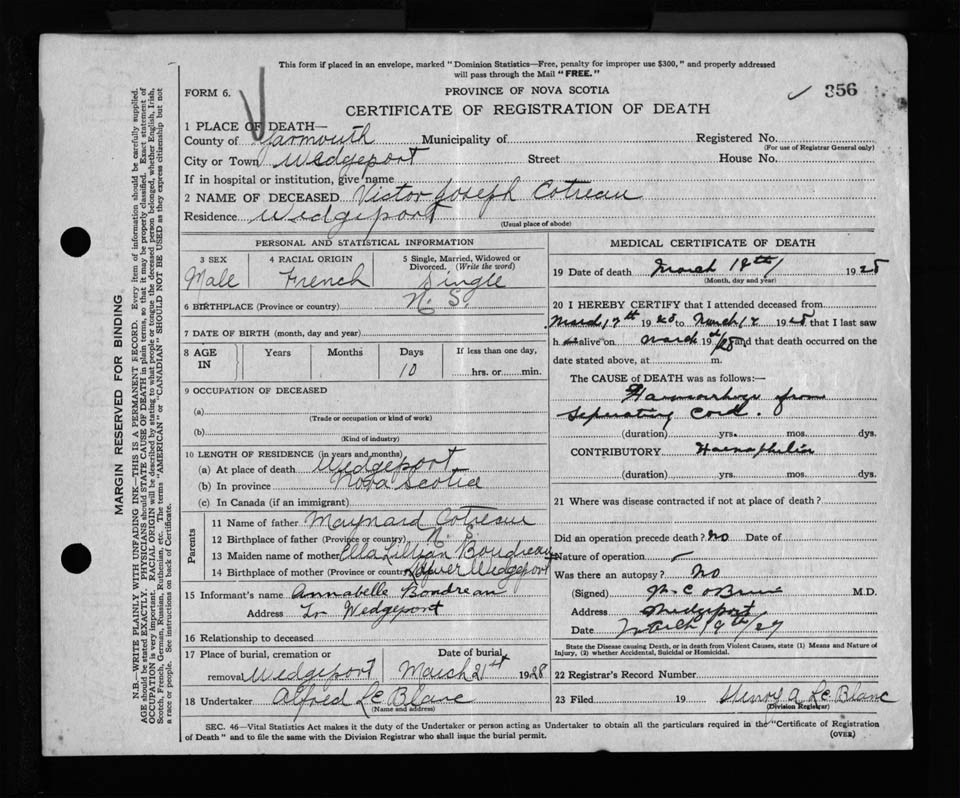 This form if placed in an envelope, marked "Dominion Statistics—Free, penalty for improper use $300," and properly addressed
will pass through the Mail "FREE."
FORM 6.
PROVINCE OF NOVA SCOTIA
356
CERTIFICATE OF REGISTRATION OF DEATH
1 PLACE OF DEATH—
County of Yarmouth Municipality of Registered No.
(For use of Registrar General only)
City or Town Wedgeport Street House No.
If in hospital or institution, give name
2 NAME OF DECEASED Victor Joseph Cotreau
Residence Wedgeport
(Usual place of abode)
PERSONAL AND STATISTICAL INFORMATION
3 SEX 4 RACIAL ORIGIN 5 Single, Married, Widowed or Divorced. (Write the word)
Male French Single
6 BIRTHPLACE (Province or country) N. S.
7 DATE OF BIRTH (month, day and year)
8 AGE IN Years Months Days If less than one day,
10 hrs. or min.
9 OCCUPATION OF DECEASED
(a)
(Trade or occupation or kind of work)
(b)
(Kind of industry)
10 LENGTH OF RESIDENCE (in years and months)
(a) At place of death Wedgeport
(b) In province Nova Scotia
(c) In Canada (if an immigrant)
Parents
11 Name of father Maynard Cotreau
12 Birthplace of father (Province or country) N. S.
13 Maiden name of mother Ella Lillian Boudreau
14 Birthplace of mother (Province or country) Lower Wedgeport
15 Informant's name Annabelle Boudreau
Address Lr Wedgeport
16 Relationship to deceased
17 Place of burial, cremation or Date of burial
removal Wedgeport March 21st 1928
18 Undertaker Alfred Le Blanc
(Name and address)
MEDICAL CERTIFICATE OF DEATH
19 Date of death March 19th 1928
(Month, day and year)
20 I HEREBY CERTIFY that I attended deceased from
March 17th 1928 to March 1 1928 that I last saw
h alive on March 19 /28 and that death occurred on the
date stated above, at m.
The CAUSE of DEATH was as follows:—
Haemorrhage from
Separating Cord.
(duration) yrs. mos. dys.
CONTRIBUTORY Haemophilia
(duration) yrs. mos. dys.
21 Where was disease contracted if not at place of death?
Did an operation precede death? No Date of
Nature of operation
Was there an autopsy? No
(Signed) M.D.
Address Wedgeport
Date March 19th/27
State the Disease causing Death, or in death from Violent Causes, state (1) Means and Nature of
Injury, (2) whether Accidental, Suicidal or Homicidal.
22 Registrar's Record Number
23 Filed 19 A Le Blanc
(Division Registrar)
SEC. 46—Vital Statistics Act makes it the duty of the Undertaker or person acting as Undertaker to obtain all the particulars required in the "Certificate of Registration
of Death" and to file the same with the Division Registrar who shall issue the burial permit.
(OVER)
MARGIN RESERVED FOR BINDING
N.B.—WRITE PLAINLY WITH UNFADING INK—THIS IS A PERMANENT RECORD. Every item of information should be carefully supplied.
AGE should be stated EXACTLY. PHYSICIANS should STATE CAUSE OF DEATH in plain terms, so that it may be properly classified. Exact statement of
OCCUPATION is very important. RACIAL ORIGIN will be described by stating to what people or tongue the deceased person belonged, whether English, Irish,
Scotch, French, German, Russian, Ruthenian, etc. The terms "AMERICAN" or "CANADIAN" SHOULD NOT BE USED as they express citizenship but not
a race or people. See instructions on back of Certificate.